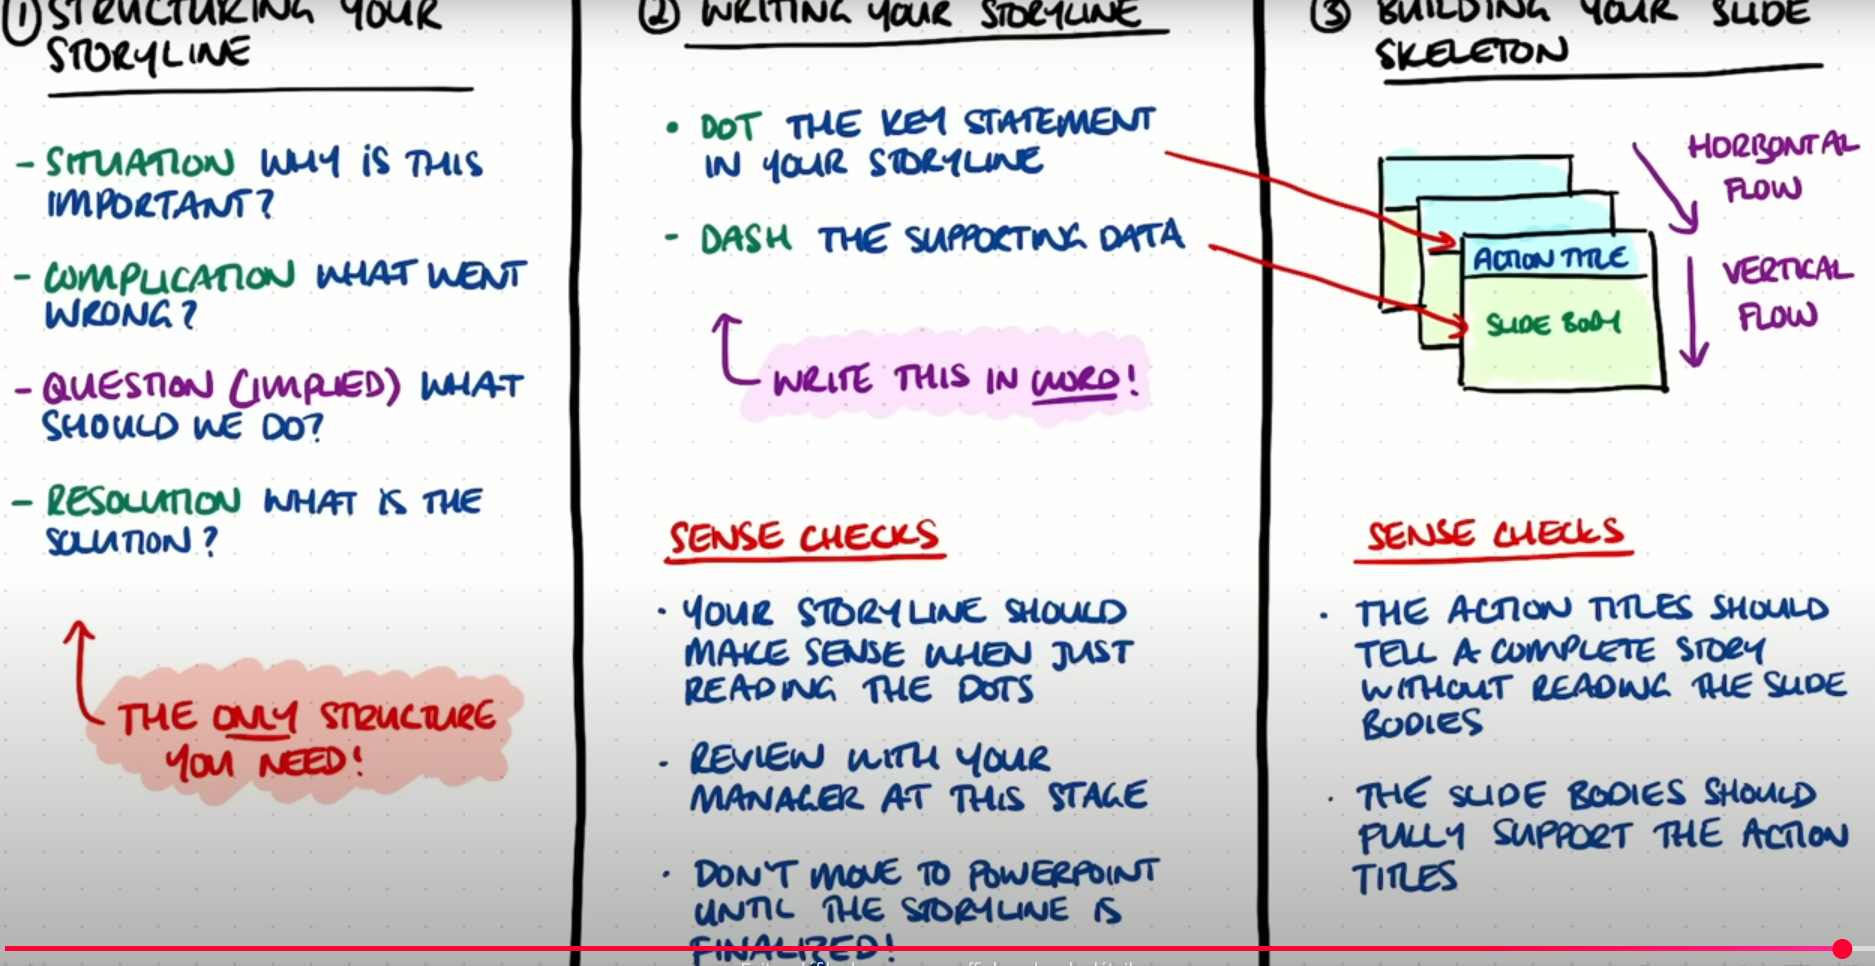 ① STRUCTURING YOUR
STORYLINE
- SITUATION WHY IS THIS
IMPORTANT?
- COMPLICATION WHAT WENT
WRONG?
- QUESTION (IMPLIED) WHAT
SHOULD WE DO?
- RESOLUTION WHAT IS THE
SOLUTION?
THE ONLY STRUCTURE
YOU NEED!
② WRITING YOUR STORYLINE
• DOT THE KEY STATEMENT
IN YOUR STORYLINE
- DASH THE SUPPORTING DATA
WRITE THIS IN WORD!
SENSE CHECKS
• YOUR STORYLINE SHOULD
MAKE SENSE WHEN JUST
READING THE DOTS
• REVIEW WITH YOUR
MANAGER AT THIS STAGE
• DON'T MOVE TO POWERPOINT
UNTIL THE STORYLINE IS
FINALIZED!
③ BUILDING YOUR SLIDE
SKELETON
ACTION TITLE
SLIDE BODY
HORIZONTAL
FLOW
VERTICAL
FLOW
SENSE CHECKS
• THE ACTION TITLES SHOULD
TELL A COMPLETE STORY
WITHOUT READING THE SLIDE
BODIES
• THE SLIDE BODIES SHOULD
FULLY SUPPORT THE ACTION
TITLES